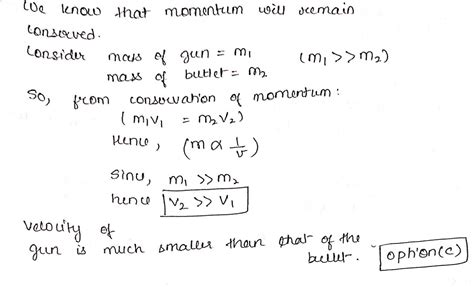 We know that momentum will remain
conserved.
Consider mass of gun = m₁ (m₁ >> m₂)
mass of bullet = m₂
So, from conservation of momentum:
(m₁v₁ = m₂v₂)
Hence, (m α 1/v)
Since, m₁ >> m₂
hence v₂ >> v₁
Velocity of
gun is much smaller than that of the
bullet. - option(c)